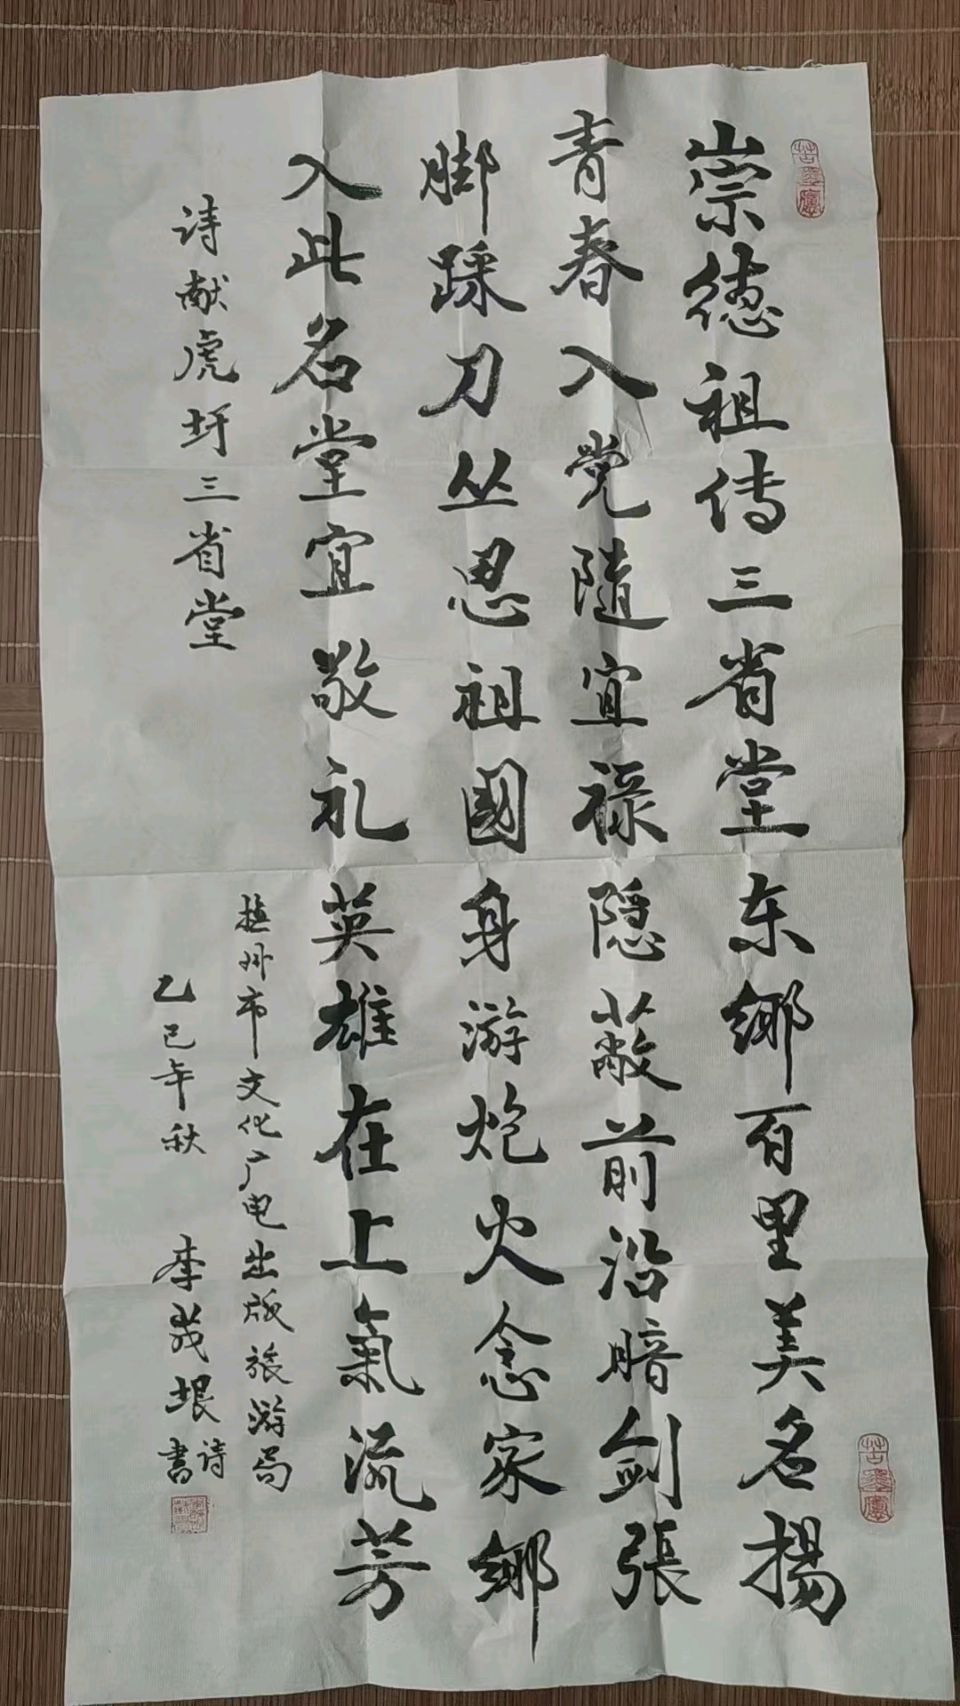 崇德祖传三省堂东乡百里美名扬
青春入党随宜禄隐蔽前沿暗剑张
脚踩刀丛思祖國身游炮火念家乡
入此名堂宜敬礼英雄在上氣流芳
诗献虎圩三省堂
抚州市文化广电出版旅游局
乙巳年秋 李茂垠诗書